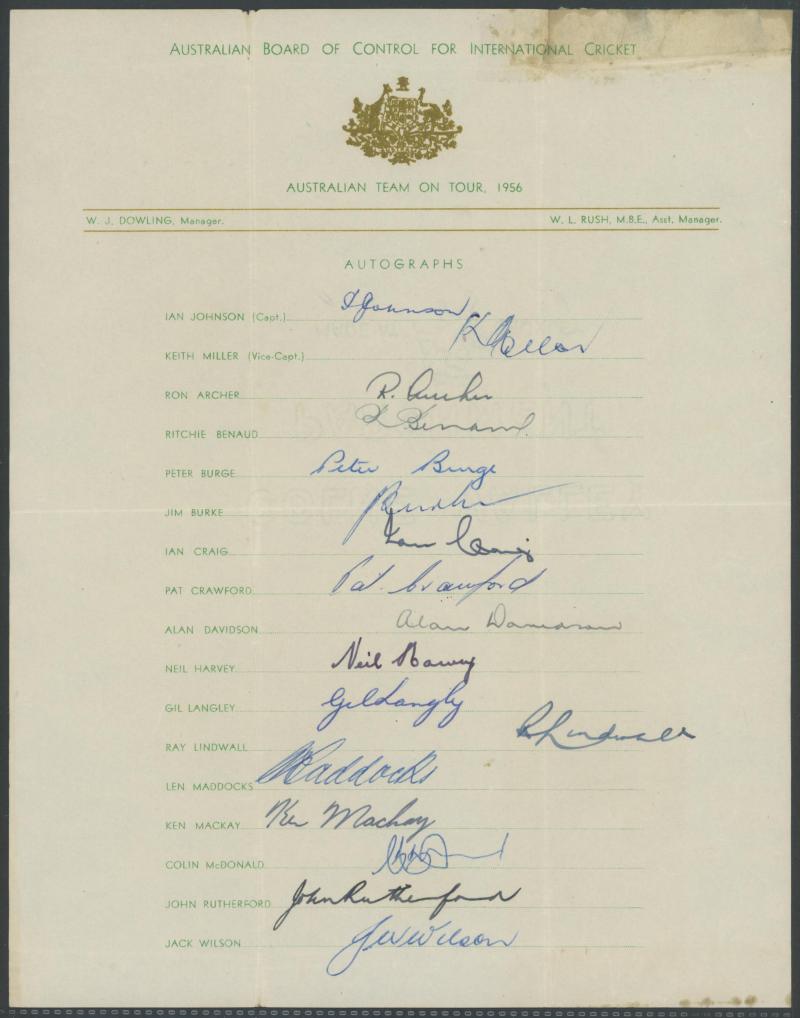 AUSTRALIAN BOARD OF CONTROL FOR INTERNATIONAL CRICKET
AUSTRALIA
AUSTRALIAN TEAM ON TOUR, 1956
W. J. DOWLING, Manager. W. L. RUSH, M.B.E., Asst. Manager.
AUTOGRAPHS
IAN JOHNSON (Capt.) I Johnson
KEITH MILLER (Vice-Capt.) K Miller
RON ARCHER R. Archer
RITCHIE BENAUD R Benaud.
PETER BURGE Peter Burge
JIM BURKE
IAN CRAIG Ian Craig
PAT CRAWFORD Pat. Crawford
ALAN DAVIDSON Alan Davidson
NEIL HARVEY Neil Harvey
GIL LANGLEY Gil Langley
RAY LINDWALL R Lindwall
LEN MADDOCKS Maddocks
KEN MACKAY Ken Mackay
COLIN McDONALD
JOHN RUTHERFORD John Rutherford
JACK WILSON J W Wilson